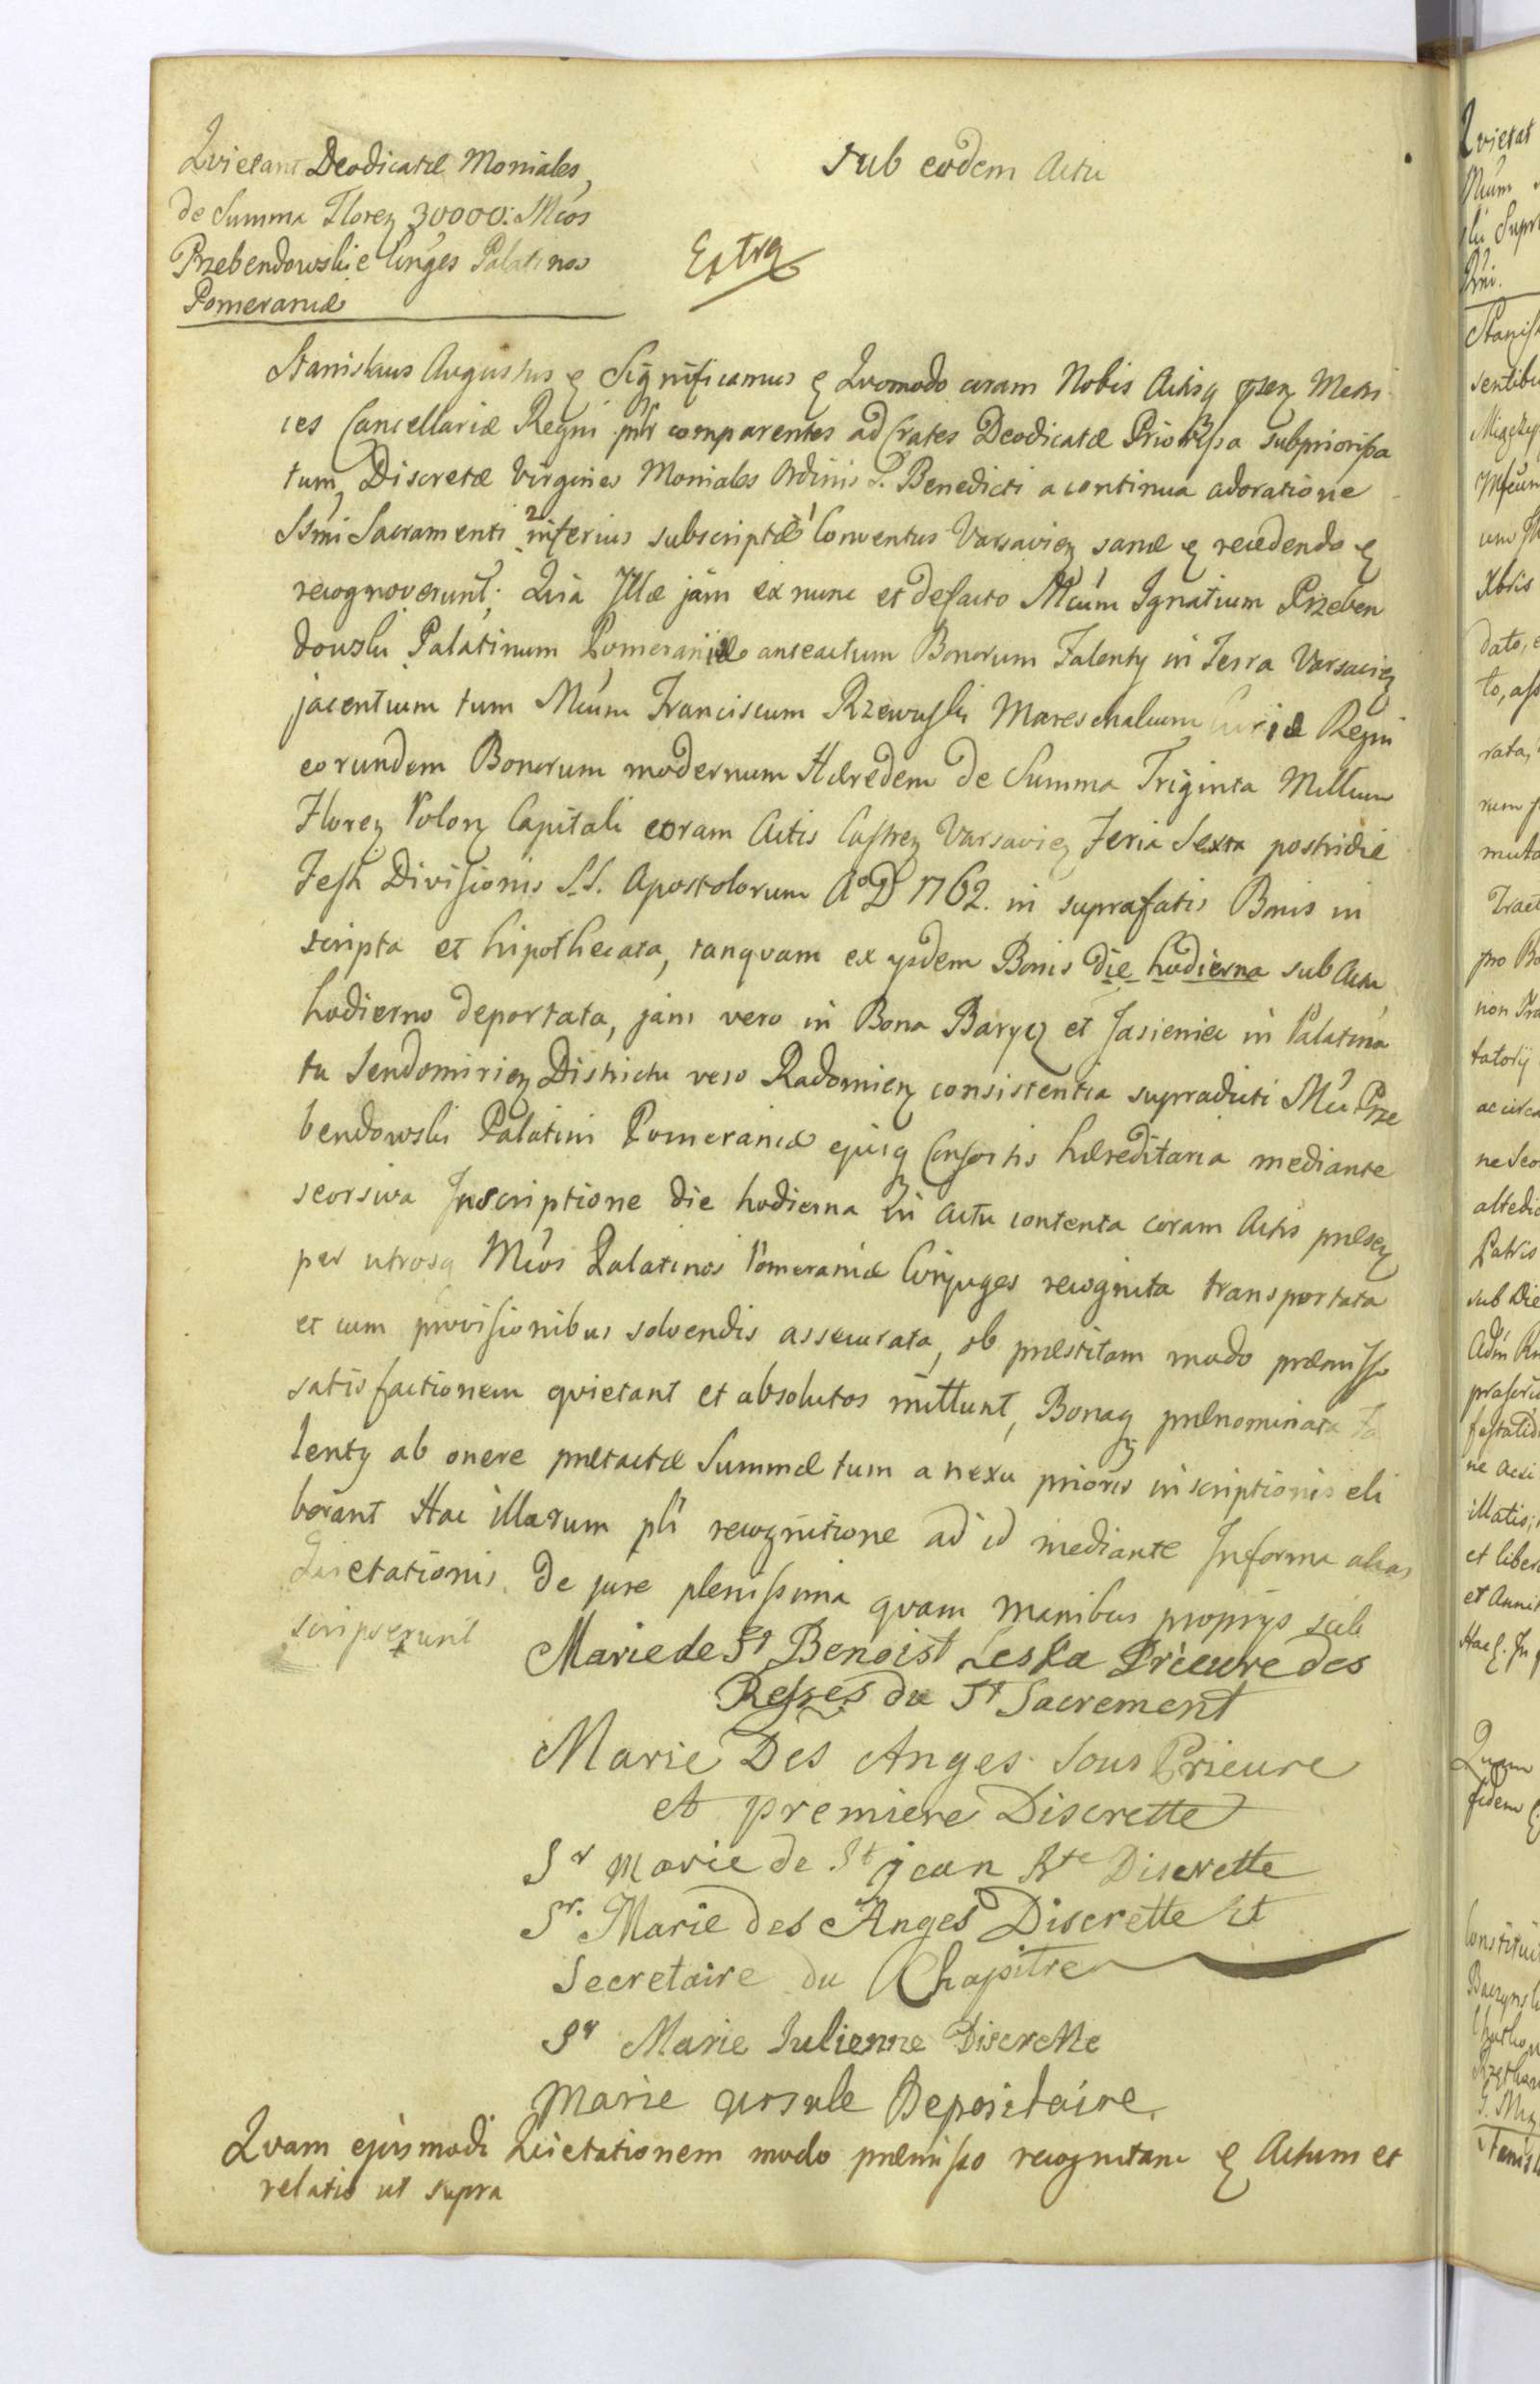 Qvietant Deodicatæ Moniales,
de Summa Floren 30000: Mcos
Przebendowskie Conges Palatinos
Pomeraniæ
sub eodem Actu
Extra
Stanislaus Augustus & Significamus & Qvomodo coram Nobis Actisq Metri
ces Cancellariæ Regni plr comparentes ad Crates Deodicatæ Priorissa subpriorissa
tum Discretæ Virgines Moniales Ordinis S. Benedicti a continua adoratione
SSmi Sacramenti inferius subscriptæ Conventus Varsavien sanæ & recedendo &
recognoverunt; Qvia Illæ jam ex nunc et defacto Mcum Ignatium Przeben
dowski Palatinum Pomeraniæ anteactum Bonorum Falenty in Terra Varsavien
jacentium tum Mcum Franciscum Rzewuski Mareschalcum Curiæ Regni
eorundem Bonorum modernum Hæredem de Summa Triginta Millium
Floren Polon Capitali coram Actis Castren Varsavien Feria Sexta postridie
Festi Divisionis S.S. Apostolorum Ao D 1762. in suprafatis Bonis in
scripta et hipothecata, tanqvam ex ysdem Bonis die hodierna sub Actu
hodierno deportata, jam vero in Bona Barycz et Jasieniec in Palatina
tu Sendomirien Districtu vero Radomien consistentia supradicti Mci Prze
bendowski Palatini Pomeraniæ ejusq Consortis hæreditaria mediante
seorsiva Inscriptione die hodierna in Actu contenta coram Actis præsen
per utrosq Mcos Palatinos Pomeraniæ Conjuges recognita transportata
et cum provisionibus solvendis assecurata, ob præstitam modo præmisso
satisfactionem qvietant et absolutos mittunt, Bonaq prænominata Fa
lenty ab onere prætactæ Summæ tum a nexu prioris inscriptionis eli
berant Hac illarum pli recognitione ad id mediante Informa alias
Qvietationis de jure plenissima qvam manibus proprys sub
scripserunt
Marie de St Benoist Leska Prieure des
Relses du St Sacrement
Marie Des Anges Sous Prieure
et premiere Discrette
Sr Marie de St jean Discrette
Sr. Marie des Anges Discrette Et
Secretaire du Chapitre
Sr Marie Julienne Discrette
Marie ursule Depositaire.
Qvam ejusmodi Qvietationem modo præmisso recognitam & Actum et
relatio ut supra